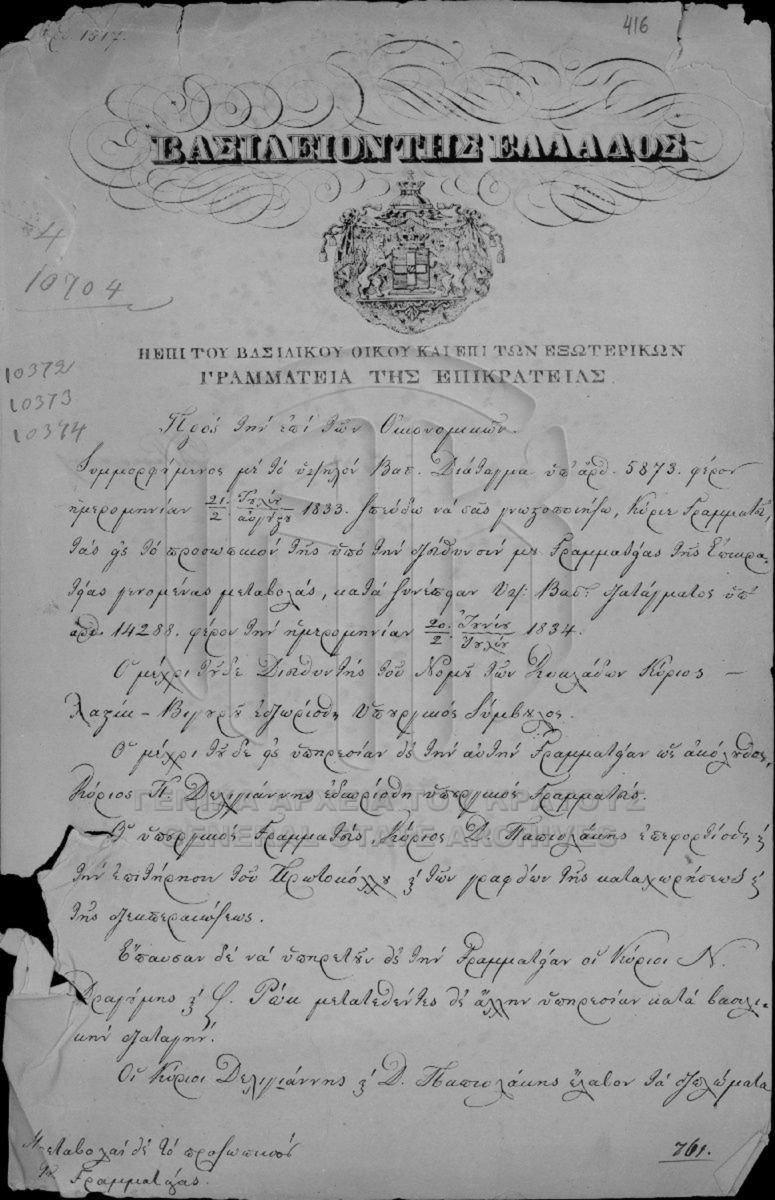 1517.
416
ΒΑΣΙΛΕΙΟΝ ΤΗΣ ΕΛΛΑΔΟΣ
4
10704
Η ΕΠΙ ΤΟΥ ΒΑΣΙΛΙΚΟΥ ΟΙΚΟΥ ΚΑΙ ΕΠΙ ΤΩΝ ΕΞΩΤΕΡΙΚΩΝ
10372
ΓΡΑΜΜΑΤΕΙΑ ΤΗΣ ΕΠΙΚΡΑΤΕΙΑΣ
10373
10374
Πρός τήν ἐπί τῶν Οἰκονομικῶν.
Συμμορφούμενος μέ τό ὑψηλόν Βασ. Διάταγμα ὑπ' ἀρθ. 5873. φέρον
ἡμερομηνίαν 21/2 Ἰουλίου/αὐγούστου 1833. σπεύδω νά σᾶς γνωστοποιήσω, Κύριε Γραμματεῦ,
τάς εἰς τό προσωπικόν τῆς ὑπό τήν διεύθυνσίν μου Γραμματείας τῆς Ἐπικρα-
τείας γενομένας μεταβολάς, κατά συνέπειαν Ὑψ: Βασ: διατάγματος ὑπ'
ἀρθ. 14288. φέρον τήν ἡμερομηνίαν 20/2 Ἰουνίου/Ἰουλίου 1834.
Ὁ μέχρι τοῦδε Διευθυντής τοῦ Νομοῦ τῶν Κυκλάδων Κύριος –
διωρίσθη Ὑπουργικός Σύμβουλος.
Ὁ μέχρι τοῦδε εἰς ὑπηρεσίαν εἰς τήν αὐτήν Γραμματείαν ὡς ἀκόλουθος,
Κύριος Π. Δεληγιάννης ἐδιωρίσθη ὑπουργικός Γραμματεύς.
ΓΕΝΙΚΑ ΑΡΧΕΙΑ ΤΟΥ ΚΡΑΤΟΥΣ
Ὁ ὑπουργικός Γραμματεύς, Κύριος Δ. Παπιολάκης ἐπεφορτίσθη καί
GENERAL STATE ARCHIVES
τήν ἐπιτήρησιν τοῦ Πρωτοκόλλου καί τῶν γραφείων τῆς καταχωρήσεως καί
τῆς διεκπεραιώσεως.
Ἔπαυσαν δέ νά ὑπηρετοῦν εἰς τήν Γραμματείαν οἱ Κύριοι Ν.
Δραγούμης καί Φ. Ρώκ μετατεθέντες εἰς ἄλλην ὑπηρεσίαν κατά βασιλι-
κήν διαταγήν.
Οἱ Κύριοι Δεληγιάννης καί Δ. Παπιολάκης ἔλαβον τά διπλώματα
Μεταβολαί εἰς τό προσωπικόν
761.
τῆς Γραμματείας.